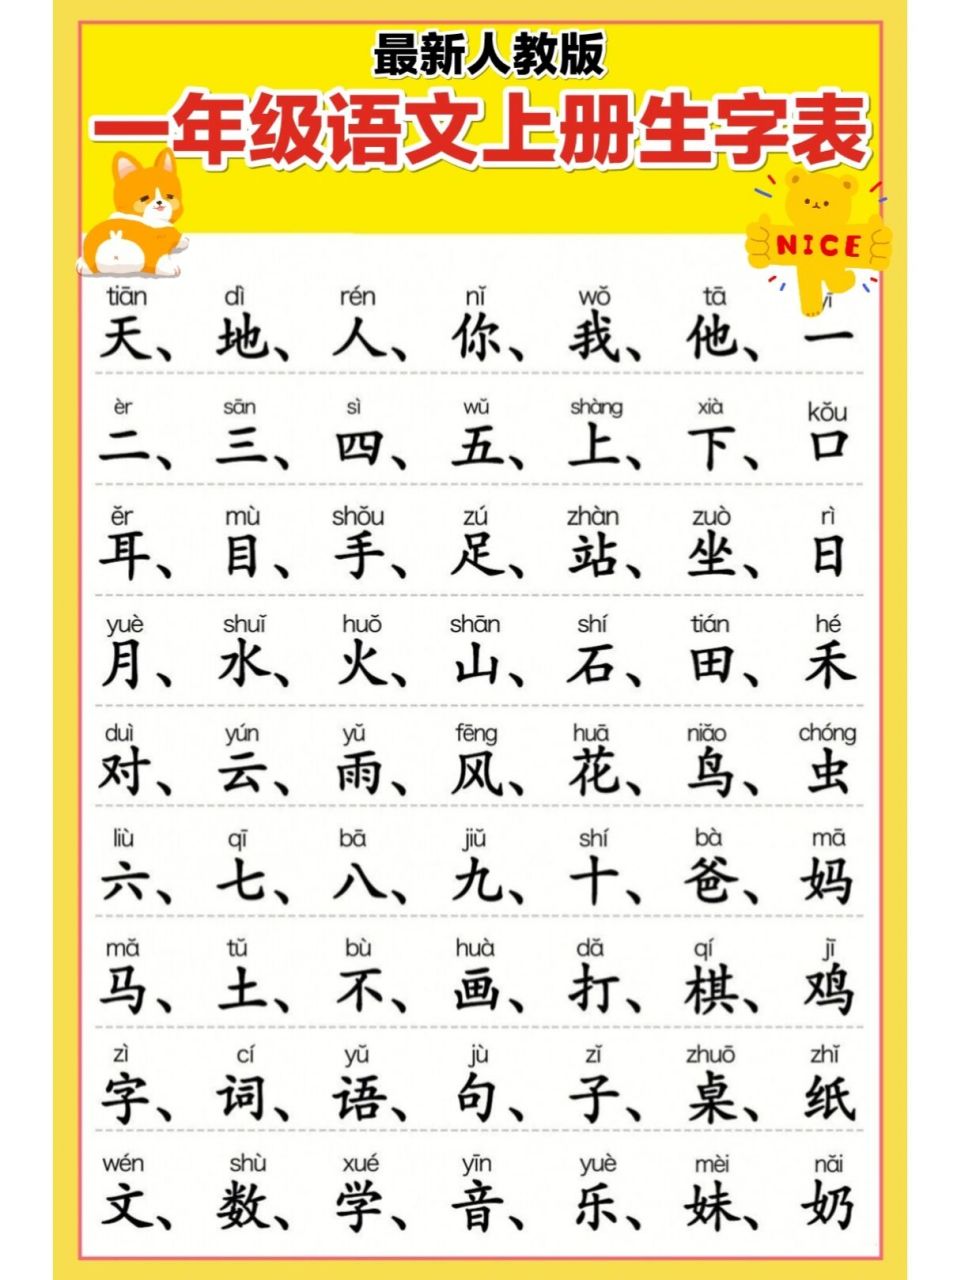 最新人教版
一年级语文上册生字表
NICE
tiān dì rén nǐ wǒ tā yī
天、地、人、你、我、他、一
èr sān sì wǔ shàng xià kǒu
二、三、四、五、上、下、口
ěr mù shǒu zú zhàn zuò rì
耳、目、手、足、站、坐、日
yuè shuǐ huǒ shān shí tián hé
月、水、火、山、石、田、禾
duì yún yǔ fēng huā niǎo chóng
对、云、雨、风、花、鸟、虫
liù qī bā jiǔ shí bà mā
六、七、八、九、十、爸、妈
mǎ tǔ bù huà dǎ qí jī
马、土、不、画、打、棋、鸡
zì cí yǔ jù zǐ zhuō zhǐ
字、词、语、句、子、桌、纸
wén shù xué yīn yuè mèi nǎi
文、数、学、音、乐、妹、奶